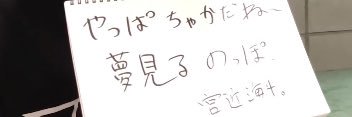 やっぱちゃかだね〜
夢見るのっぽ
宮近海斗。